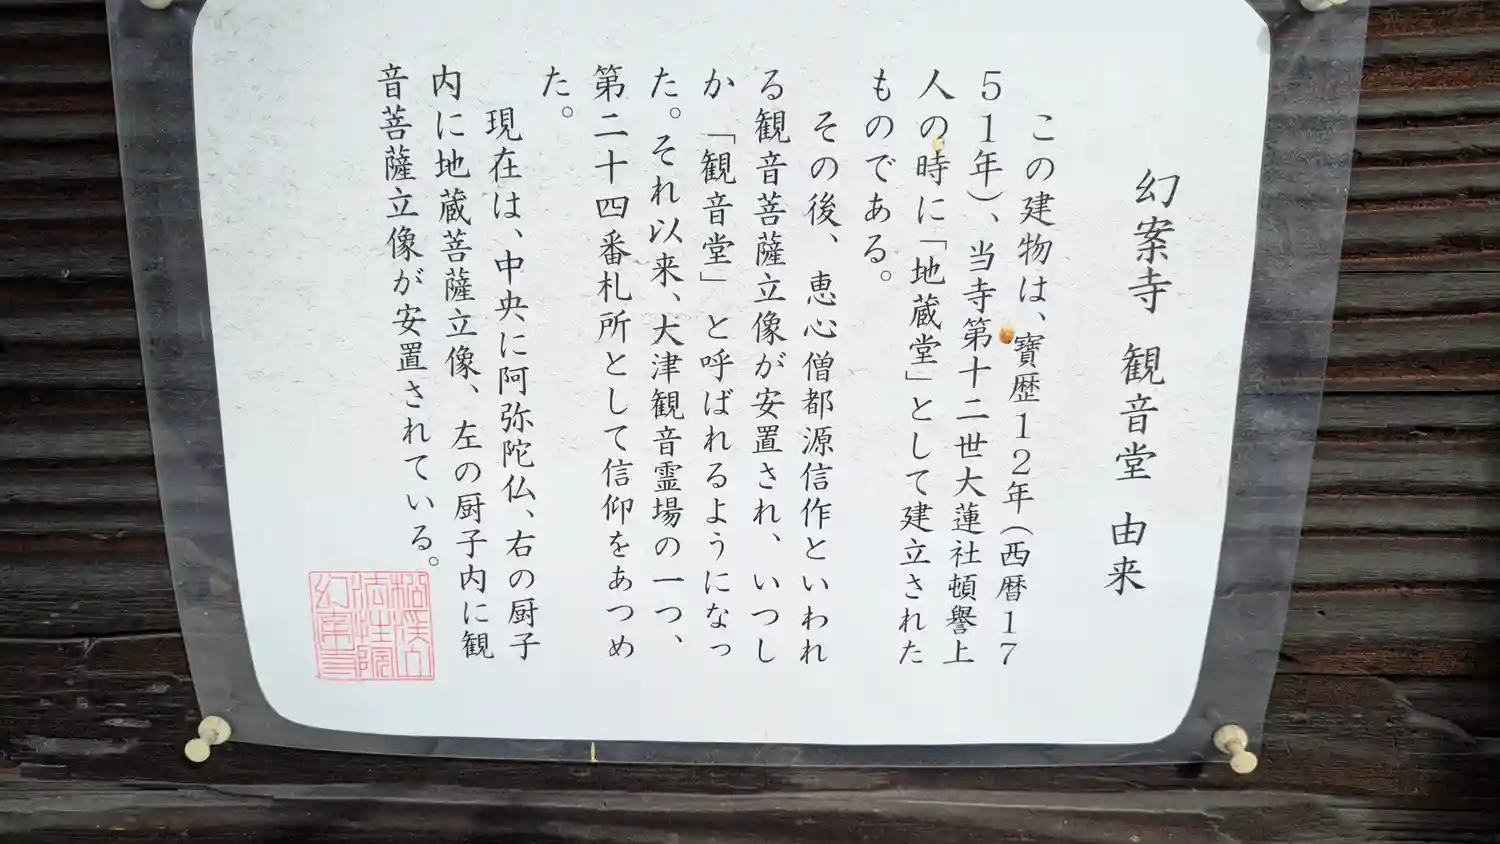 幻案寺 観音堂 由来
この建物は、寶歴12年（西暦17
51年）、当寺第十二世大蓮社頓譽上
人の時に「地蔵堂」として建立された
ものである。
その後、恵心僧都源信作といわれ
る観音菩薩立像が安置され、いつし
か「観音堂」と呼ばれるようになっ
た。それ以来、大津観音霊場の一つ、
第二十四番札所として信仰をあつめ
た。
現在は、中央に阿弥陀仏、右の厨子
内に地蔵菩薩立像、左の厨子内に観
音菩薩立像が安置されている。